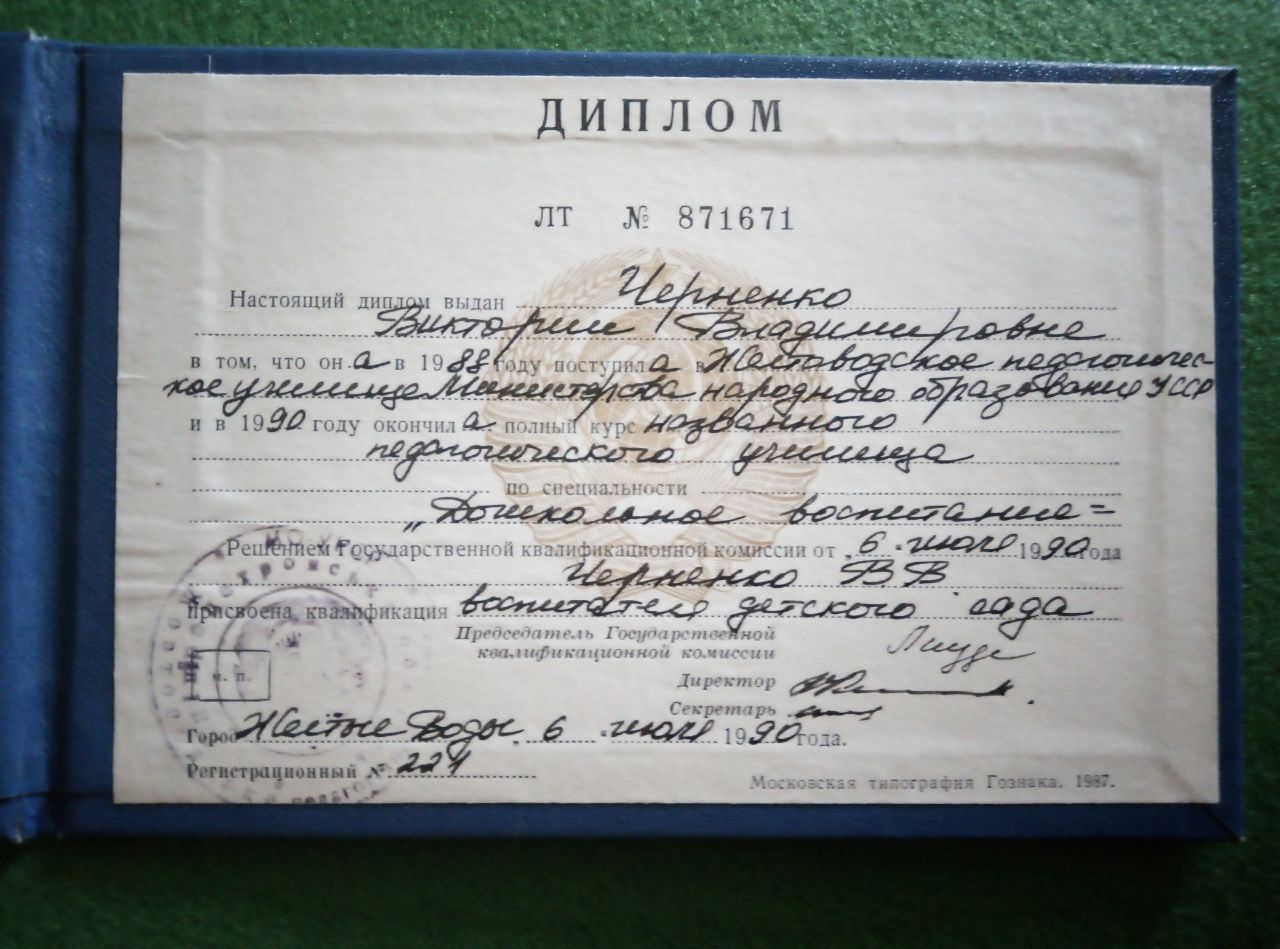 ДИПЛОМ
ЛТ № 871671
Настоящий диплом выдан Черненко
Виктории Владимировне
в том, что она в 1988 году поступила в Желтоводское педагогичес-
кое училище Министерства народного образования УССР
и в 1990 году окончила полный курс названного
педагогического училища
по специальности
„Дошкольное воспитание"
Решением Государственной квалификационной комиссии от „6" июля 1990 года
Черненко В.В
присвоена квалификация воспитателя детского сада
Председатель Государственной
квалификационной комиссии
Директор
Секретарь
м. п.
Город Желтые Воды „6" июля 1990 года.
Регистрационный № 221
Московская типография Гознака. 1987.